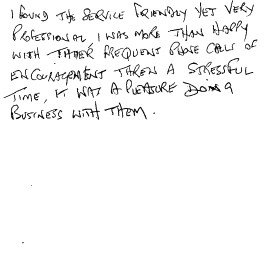 I FOUND THE SERVICE FRIENDLY YET VERY
PROFESSIONAL I WAS MORE THAN HAPPY
WITH THEER FREQUENT PHONE CALLS OF
ENCOURAGEMENT A STRESSFUL
TIME, IT WAS A PLEASURE DOING
BUSINESS WITH THEM.